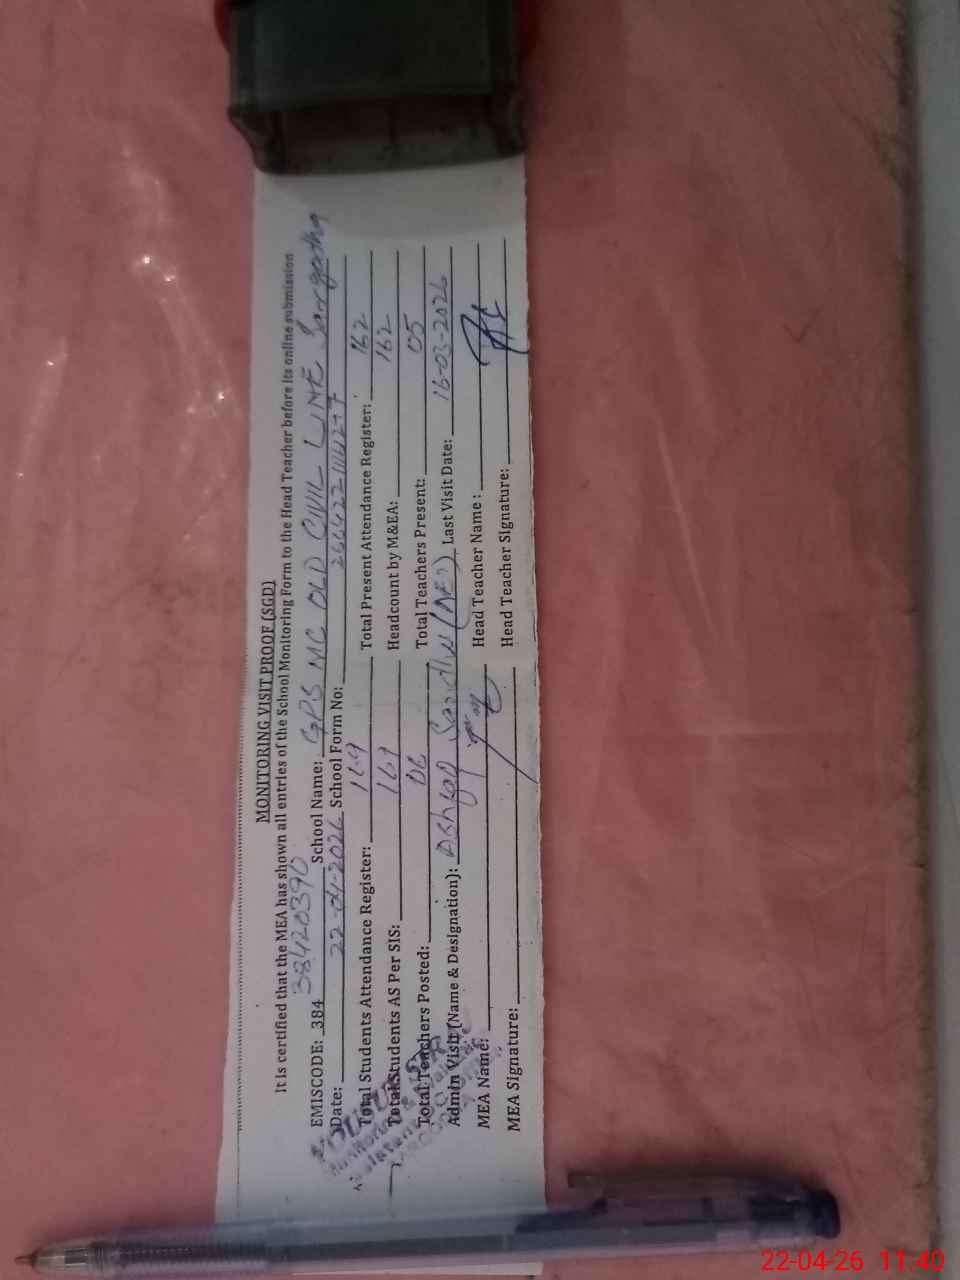 MONITORING VISIT PROOF (SGD)
It is certified that the MEA has shown all entries of the School Monitoring Form to the Head Teacher before its online submission
EMISCODE: 384 38420390 School Name: GPS MC OLD CIVIL LINE Sargodha
Date: 22-04-2026 School Form No:
Total Students Attendance Register: 169 Total Present Attendance Register: 162
Total Students AS Per SIS: 169 Headcount by M&EA: 162
Total Teachers Posted: 06 Total Teachers Present: 05
Admin Visit (Name & Designation): Ashfaq (AEO) Last Visit Date: 16-03-2026
MEA Name: Head Teacher Name :
MEA Signature: Head Teacher Signature:
22-04-26 11:40